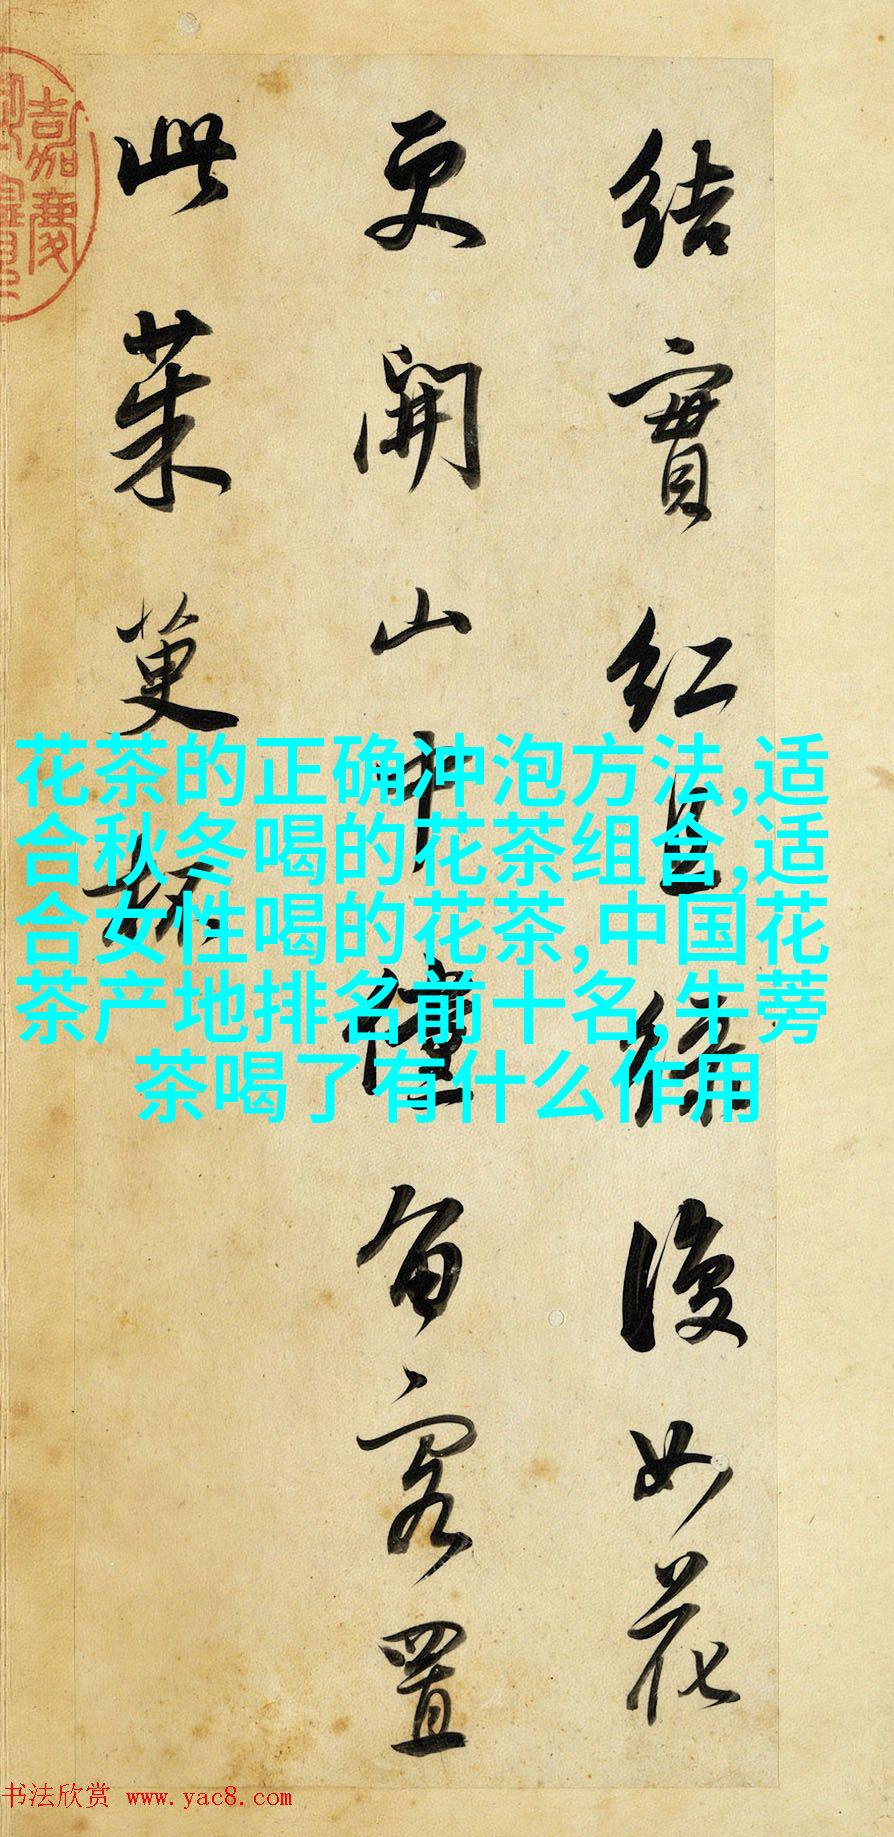 結實紅且綠復如花
更開山中儻留客置
此茱萸杯
嘉慶
花茶的正确冲泡方法,适
合秋冬喝的花茶组合,适
合女性喝的花茶,中国花
茶产地排名前十名,牛蒡
茶喝了有什么作用
书法欣赏 www.yac8.com